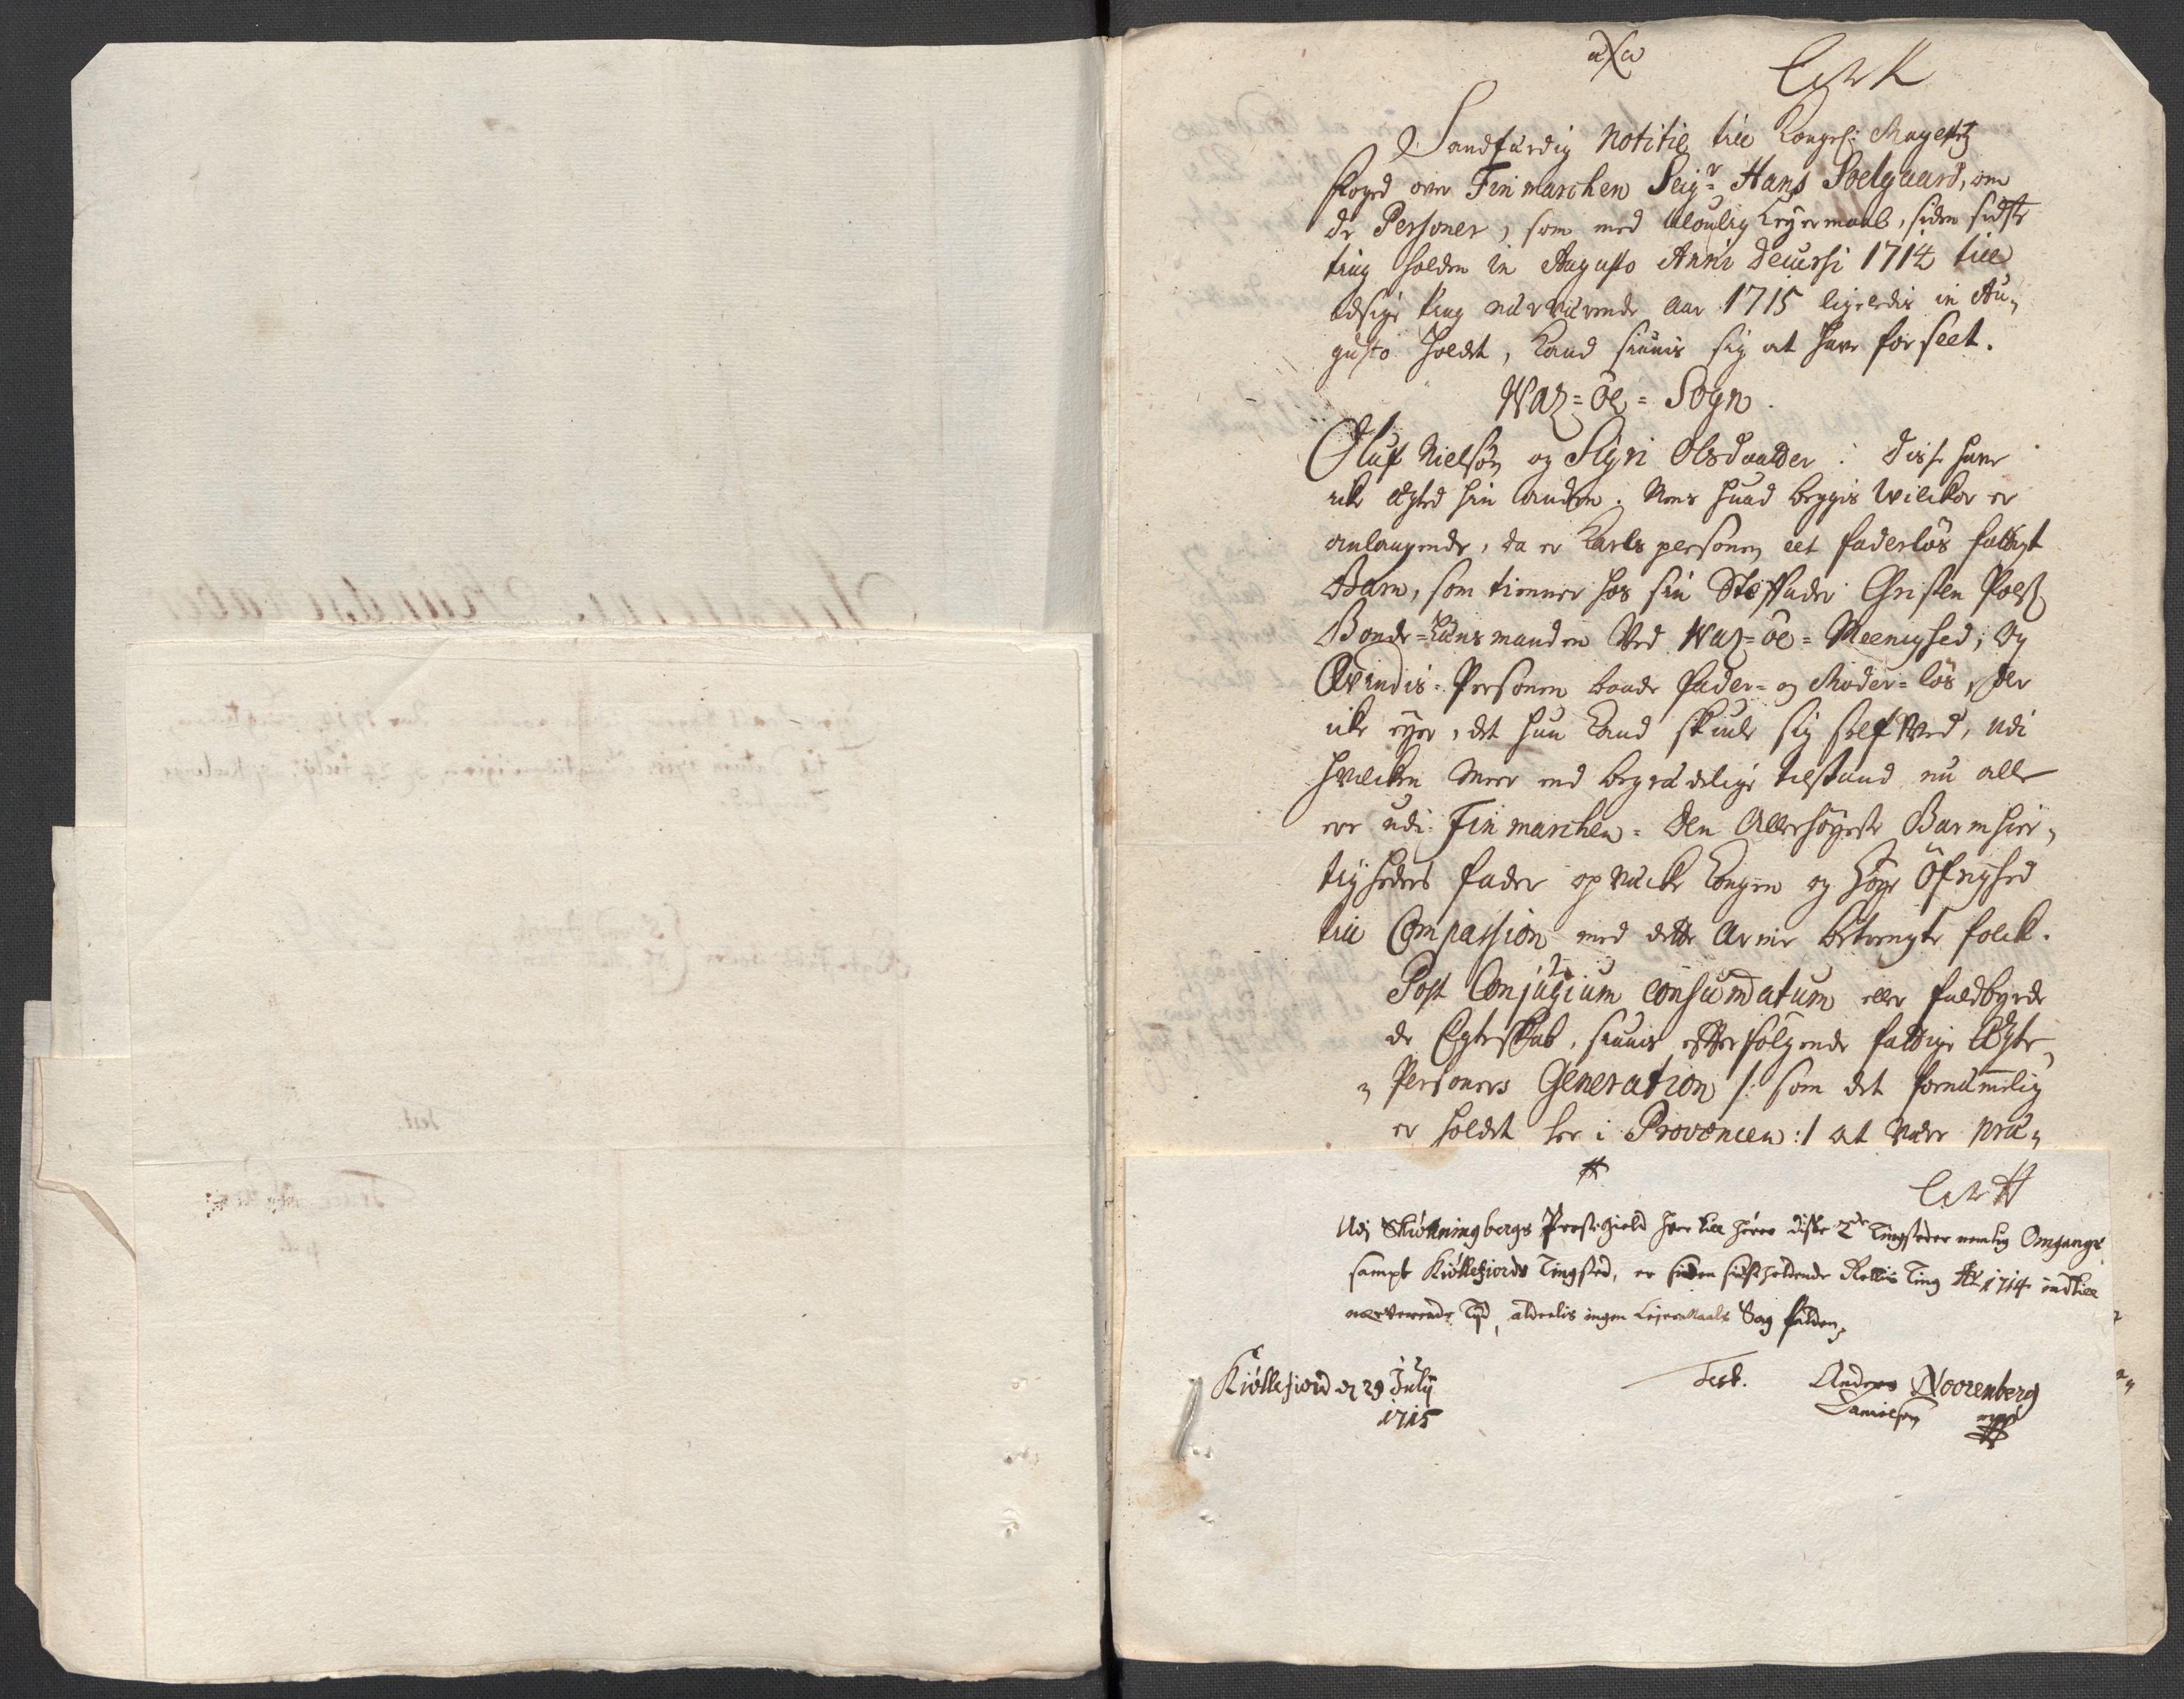 Litr K
Sandfærdig Notitie till Kongel: Mayestz
foged over Finmarchen Seigr Hans Soelgaard, om
de Personer, som med ulovlig Leyermaal, siden sidste
ting holden in Augusto Anni decursi 1714 till
idsige ting nærværende aar 1715 ligeledis in Au-
gusto holdet, kand findis sig at have forseet.
Waz-öe-Sogn.
Oluf Nielsön og Sigri Olsdaatter: disse have
icke ægted hin anden. Mens huad beggis Willkor er
anlangende, da er Karls personen eet faderlös fattigt
Barn, som tienner hos sin Steffader Christen Pols:
Bonde-Länsmanden ved Waz-öe-Meenighed; og
Qvindis-Personen baade fader- og Moder-lös, der
icke eyer, det hun kand skiule sig self ved, udi
hvilcken meer end begrædelige tilstand nu alle
ere udi Finmarchen. Den Allerhöyeste Barmhier-
tigheders fader opvæcke kongen og höye Öfrighed
till Compassion med dette arme betrengte folck.
Post Conjugium consummatum eller fuldbyrde
de Egteskab, findis effterfölgende fattige Ægte-
Personers Generation /: som det fornemmelig
er holdet her i Provincien :/ at være præ-
Litr H
Udj Skiöttningbergs Prestegield her till hörer diske 2de Tingsteder nemlig Omgangs
sampt Kiöllefiords Tingsted, er siden sidst holdende Rettis Ting Ao 1714 indtill
nærverende Tijd, aldeelis ingen Leyermaals Sag falden,
Kiöllefiord d 29 Julij
1715
Test.
Anders Noorenberg
Danielsen mppr